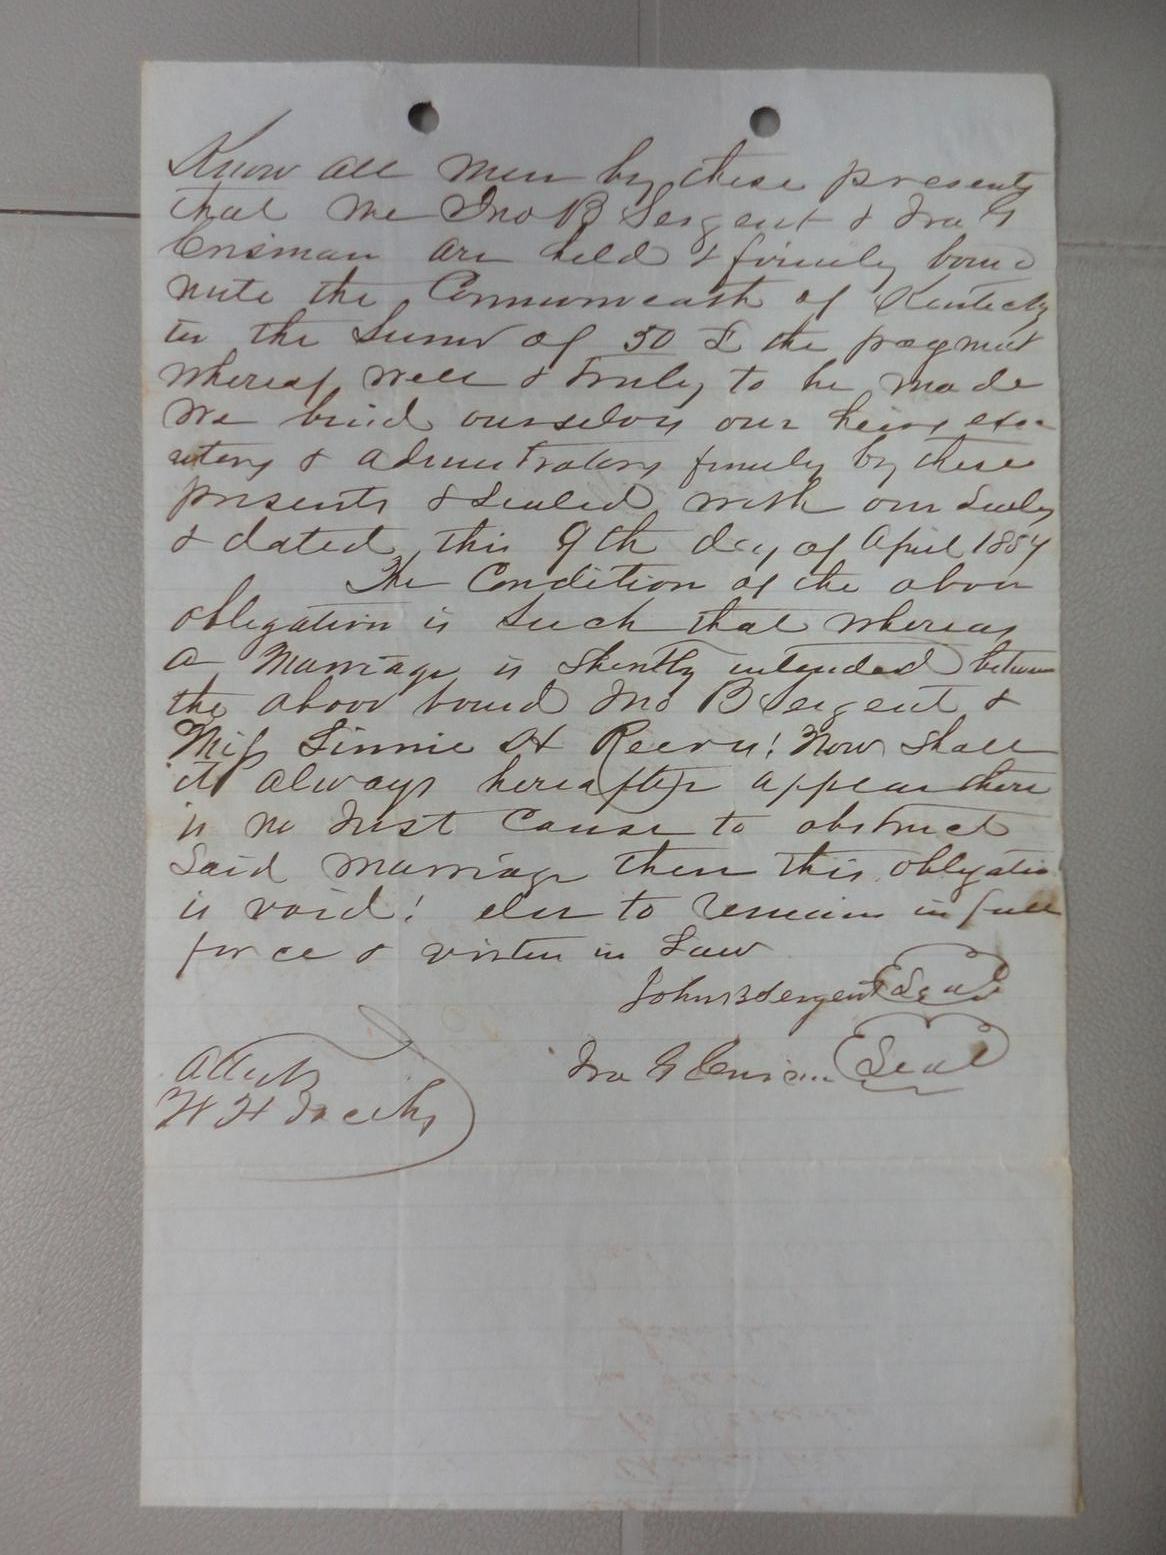 Know all men by these presents
that we Jno B Sergent & Ira G
Crisman are held & firmly bound
unto the Commonwealth of Kentucky
in the Sum of 50 £ the payment
whereof well & truly to be made
We bind ourselves our heirs exe
cutors & administrators firmly by these
presents & sealed with our seals
& dated this 9th day of April 1857
The Condition of the above
obligation is such that whereas
a Marriage is shortly intended between
the above bound Jno B Sergent &
Miss Linnie H Reeves! Now shall
it always hereafter appear there
is no Just Cause to obstruct
Said marriage then this obligatio
is void! else to remain in full
force & virtue in Law
John B Sergent Seal
Ira G Crisman Seal
Attest
W H